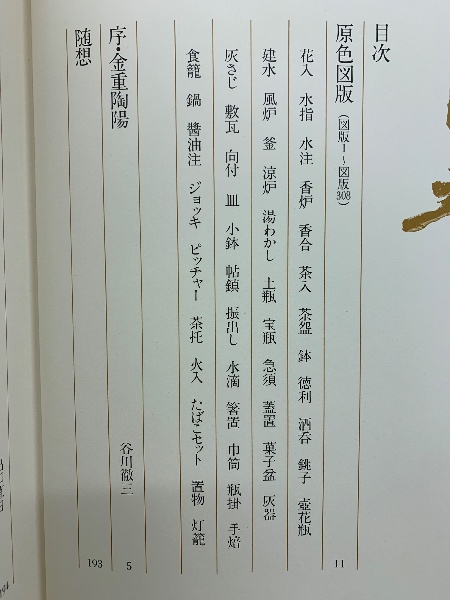 目次
原色図版（図版1〜図版308） 11
花入 水指 水注 香炉 香合 茶入 茶盌 鉢 徳利 酒呑 銚子 壺花瓶
建水 風炉 釜 涼炉 湯わかし 上瓶 宝瓶 急須 蓋置 菓子盆 灰器
灰さじ 敷瓦 向付 皿 小鉢 帖鎮 振出し 水滴 箸置 巾筒 瓶掛 手焙
食籠 鍋 醬油注 ジョッキ ピッチャー 茶托 火入 たばこセット 置物 灯籠
序・金重陶陽 谷川徹三 5
随想 193